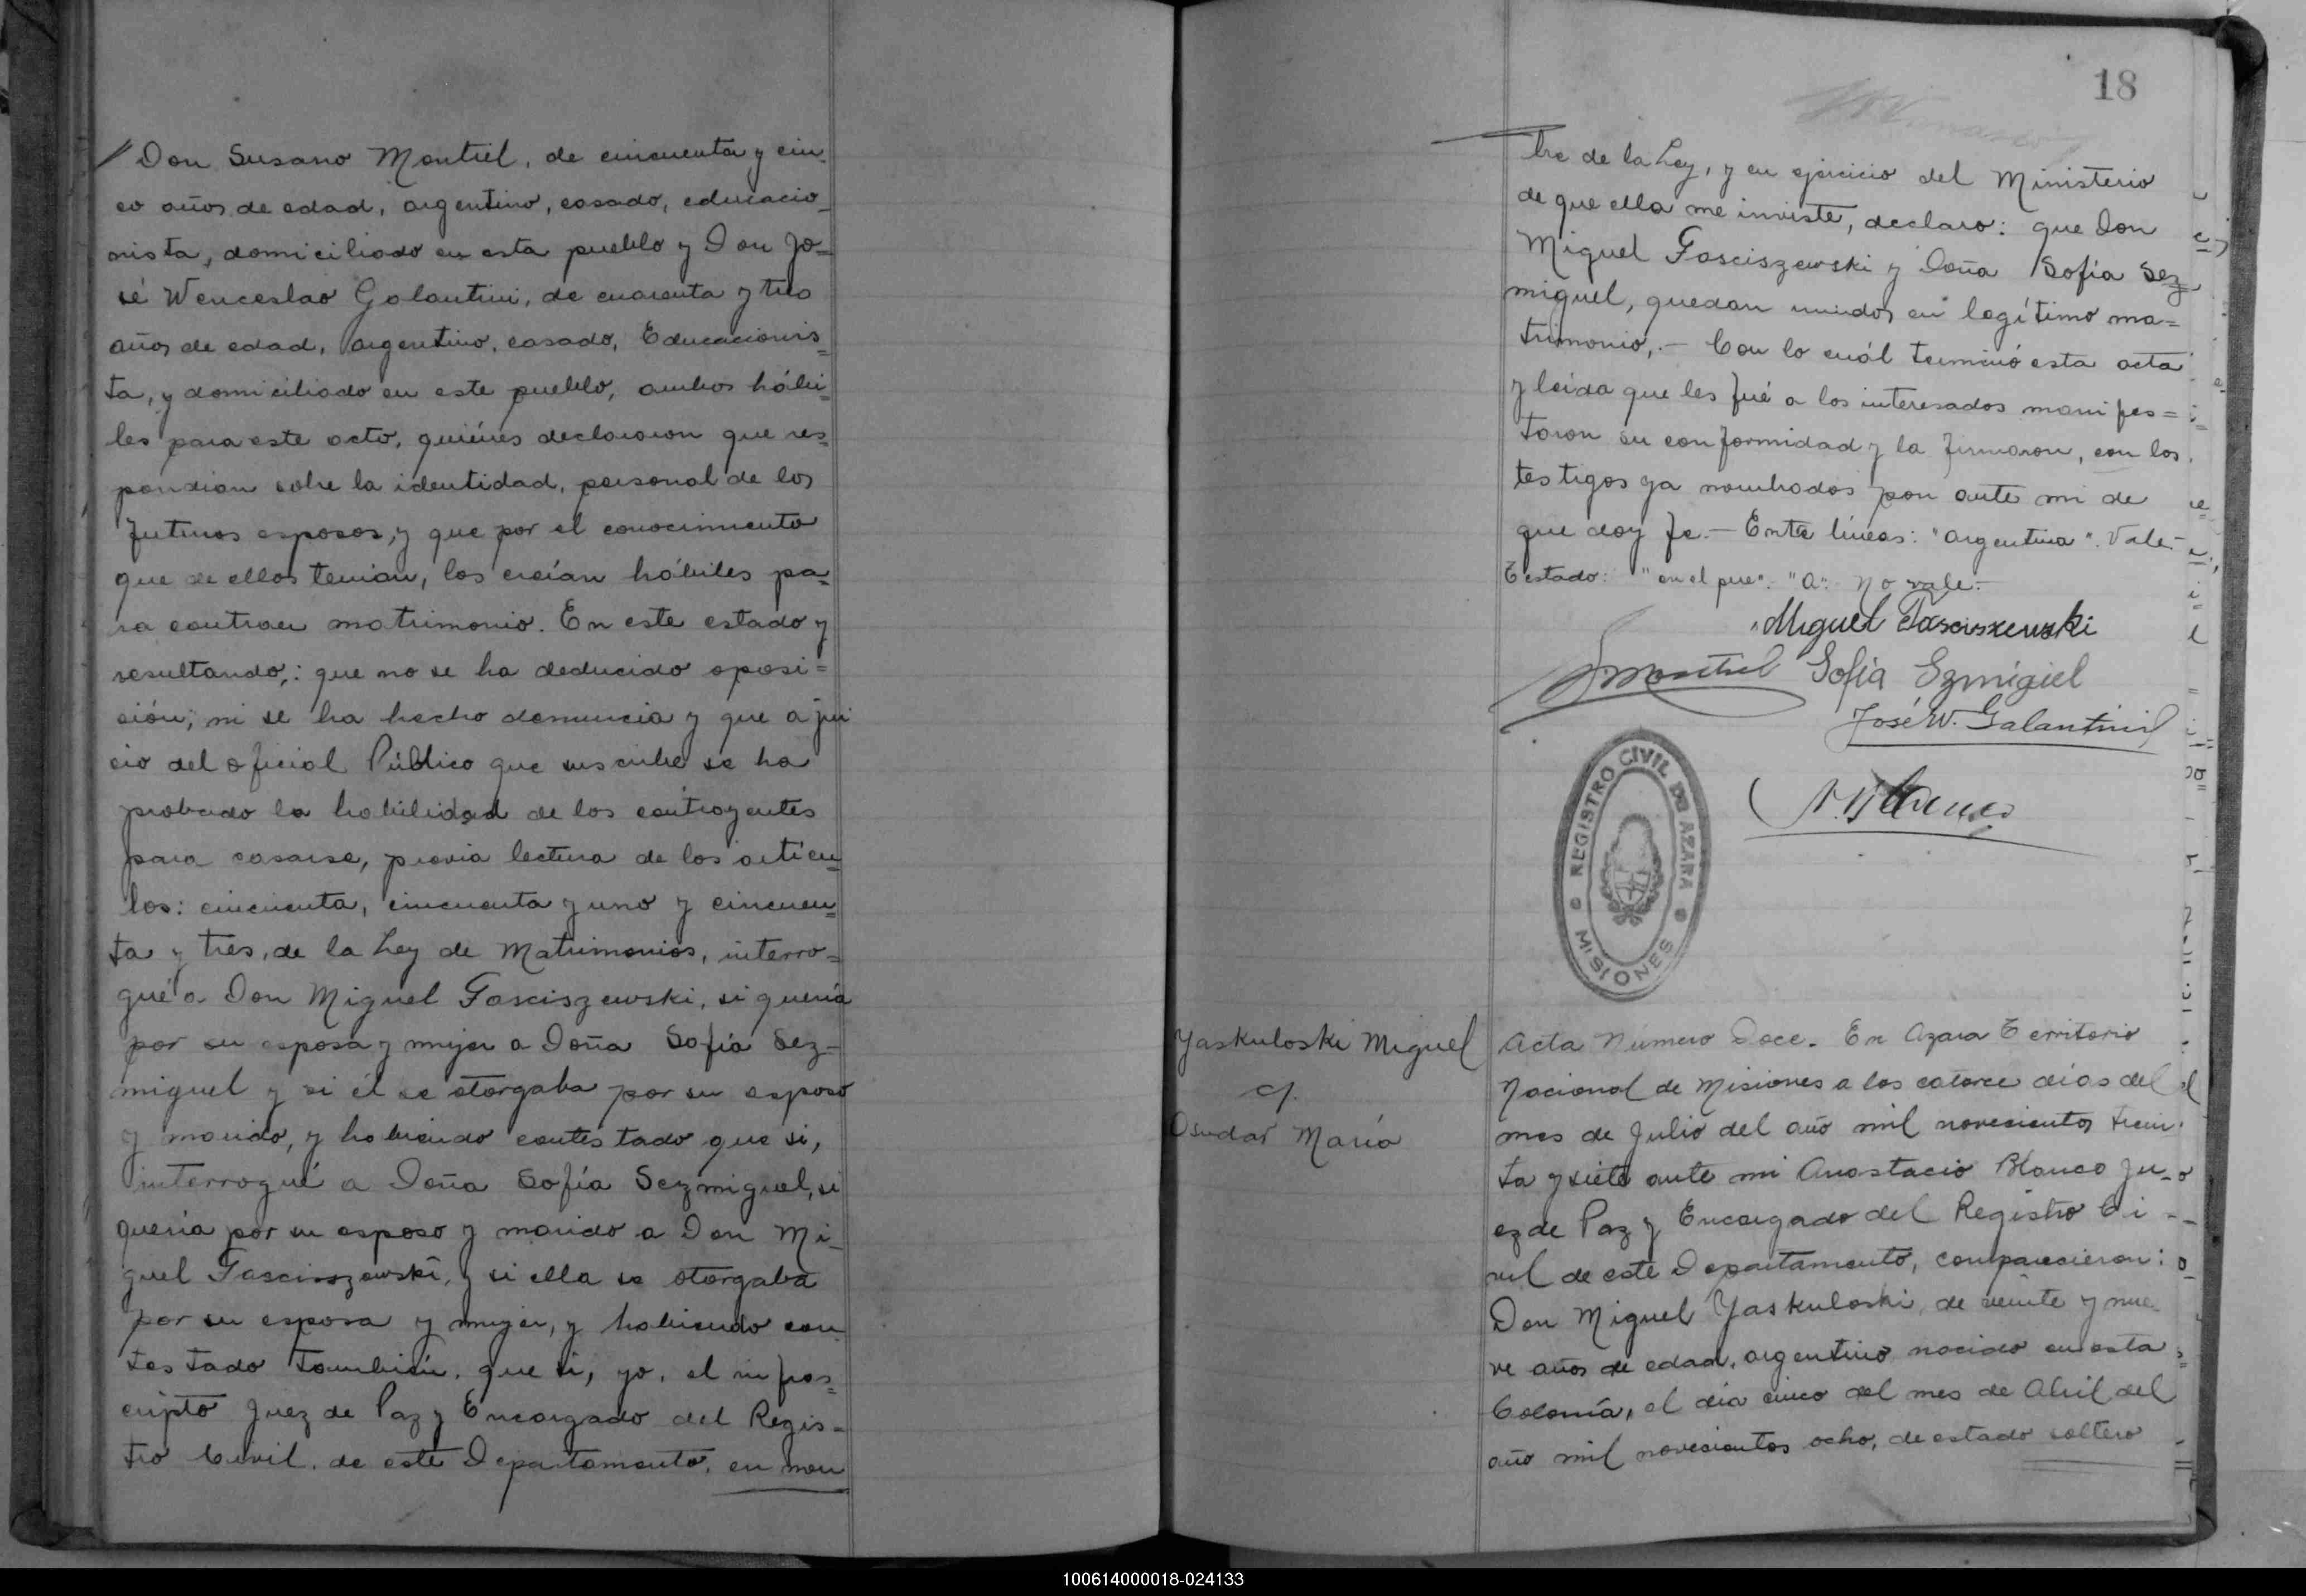 Don Susano Montiel, de cincuenta y cin-
co años de edad, argentino, casado, educacio-
nista, domiciliado en esta pueblo y Don Jo=
sé Wenceslao Galantini, de cuarenta y tres
años de edad, argentino, casado, Educacionis=
ta, y domiciliado en este pueblo, ambos hábi=
les para este acto, quiénes declararon que res=
pondian sobre la identidad, personal de los
futuros esposos, y que por el conocimiento
que de ellos tenian, los creían hábiles pa=
ra contraer matrimonio. En este estado y
resultando,: que no se ha deducido oposi=
ción; ni se ha hecho denuncia y que a jui
cio del oficial Público que suscribe se ha
probado la habilidad de los contrayentes
para casarse, previa lectura de los artícu=
los: cincuenta, cincuenta y uno y cincuen=
ta y tres, de la Ley de Matrimonios, interro=
gué a Don Miguel Fasciszewski, si quería
por su esposa y mujer a Doña Sofía Sez-
miguel y si él se otorgaba por su esposo
y marido, y habiendo contestado que si,
interrogué a Doña Sofía Sezmiguel, si
quería por su esposo y marido a Don Mi-
guel Fasciszewski, y si ella se otorgaba
por su esposa y mujer, y habiendo con
testado también, que si, yo, el infras=
cripto Juez de Paz y Encargado del Regis=
tro Civil, de este Departamento, en nom
18
bre de la Ley, y en ejercicio del Ministerio
de que ella me inviste, declaro: que Don
Miguel Fasciszewski y Doña Sofía Sez=
miguel, quedan unidos en legítimo ma=
trimonio,.- Con lo cuál terminó esta acta
y leída que les fué a los interesados manifes=
taron su conformidad y la firmaron, con los
testigos ya nombrados por ante mi de
que doy fe.- Entre líneas: "argentina". Vale.-
Testado: "en el pue". "a". No vale.-
Miguel Fasciszewski
S. Montiel Sofia Ezmigiel
José W. Galantini
REGISTRO CIVIL DE AZARA
MISIONES
Yaskuloski Miguel
c/.
Osudar María
Acta Número Doce. En Azara Territorio
Nacional de Misiones a los catorce días del
mes de Julio del año mil novecientos trein-
ta y siete ante mi Anastacio Blanco Ju-
ez de Paz y Encargado del Registro Ci-
vil de este Departamento, comparecieron:
Don Miguel Yaskuloski, de veinte y nue-
ve años de edad, argentino nacido en esta
Colonia, el día cinco del mes de Abril del
año mil novecientos ocho, de estado soltero
100614000018-024133